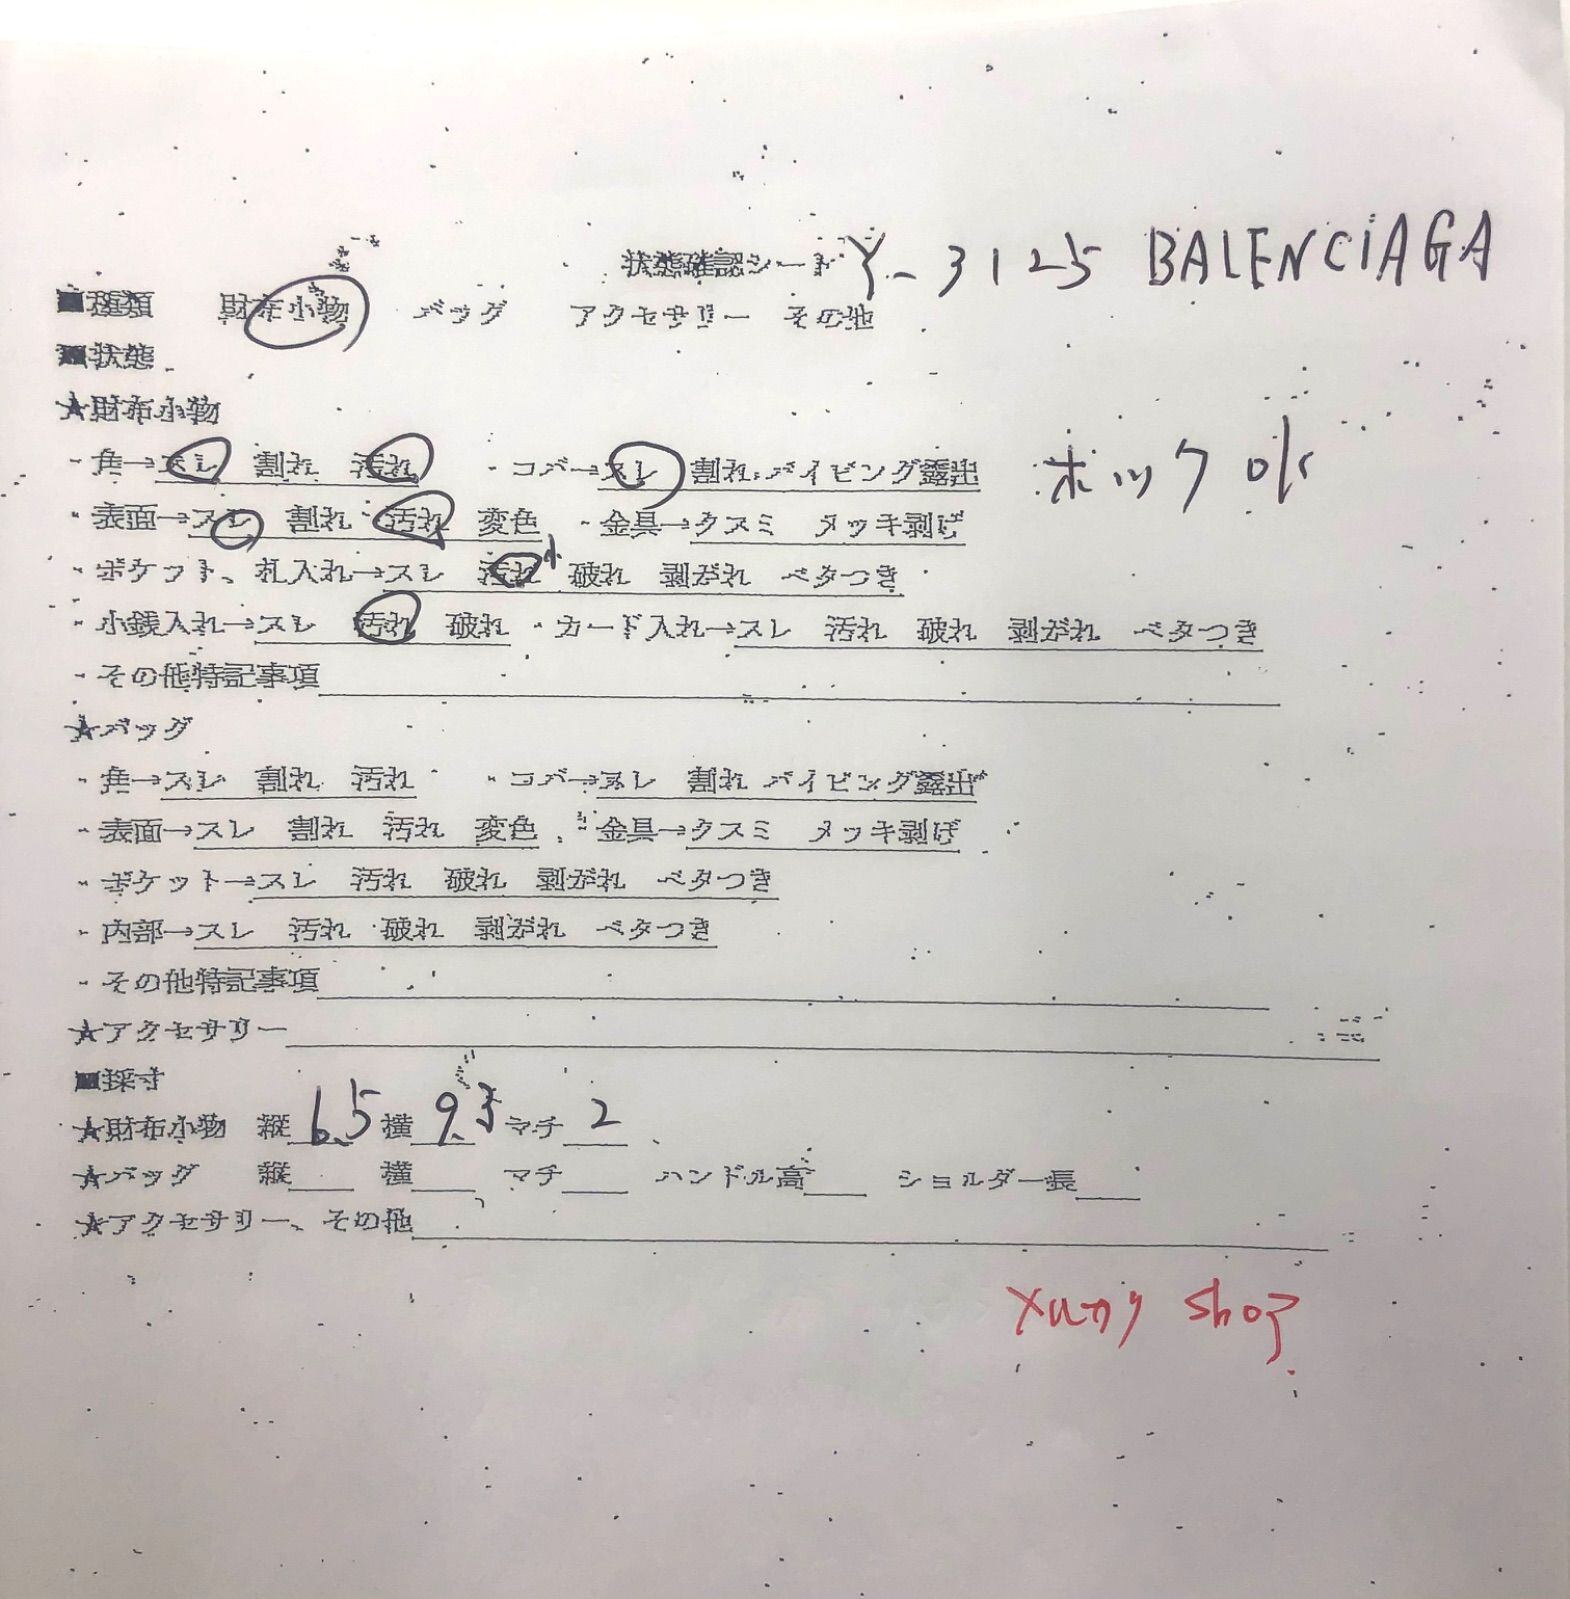 状態確認シート Y-3125 BALENCIAGA
■種類 財布小物 バッグ アクセサリー その他
■状態
★財布小物
・角→スレ 割れ 汚れ ・コバ→スレ 割れ パイピング露出 ホック ok
・表面→スレ 割れ 汚れ 変色 ・金具→クスミ メッキ剥げ
・ポケット、札入れ→スレ 汚れ小 破れ 剥がれ ベタつき
・小銭入れ→スレ 汚れ 破れ ・カード入れ→スレ 汚れ 破れ 剥がれ ベタつき
・その他特記事項
★バッグ
・角→スレ 割れ 汚れ ・コバ→スレ 割れ パイピング露出
・表面→スレ 割れ 汚れ 変色 ・金具→クスミ メッキ剥げ
・ポケット→スレ 汚れ 破れ 剥がれ ベタつき
・内部→スレ 汚れ 破れ 剥がれ ベタつき
・その他特記事項
★アクセサリー
■採寸
★財布小物 縦 6.5 横 マチ 2
★バッグ 縦 横 マチ ハンドル高 ショルダー長
★アクセサリー、その他
shop